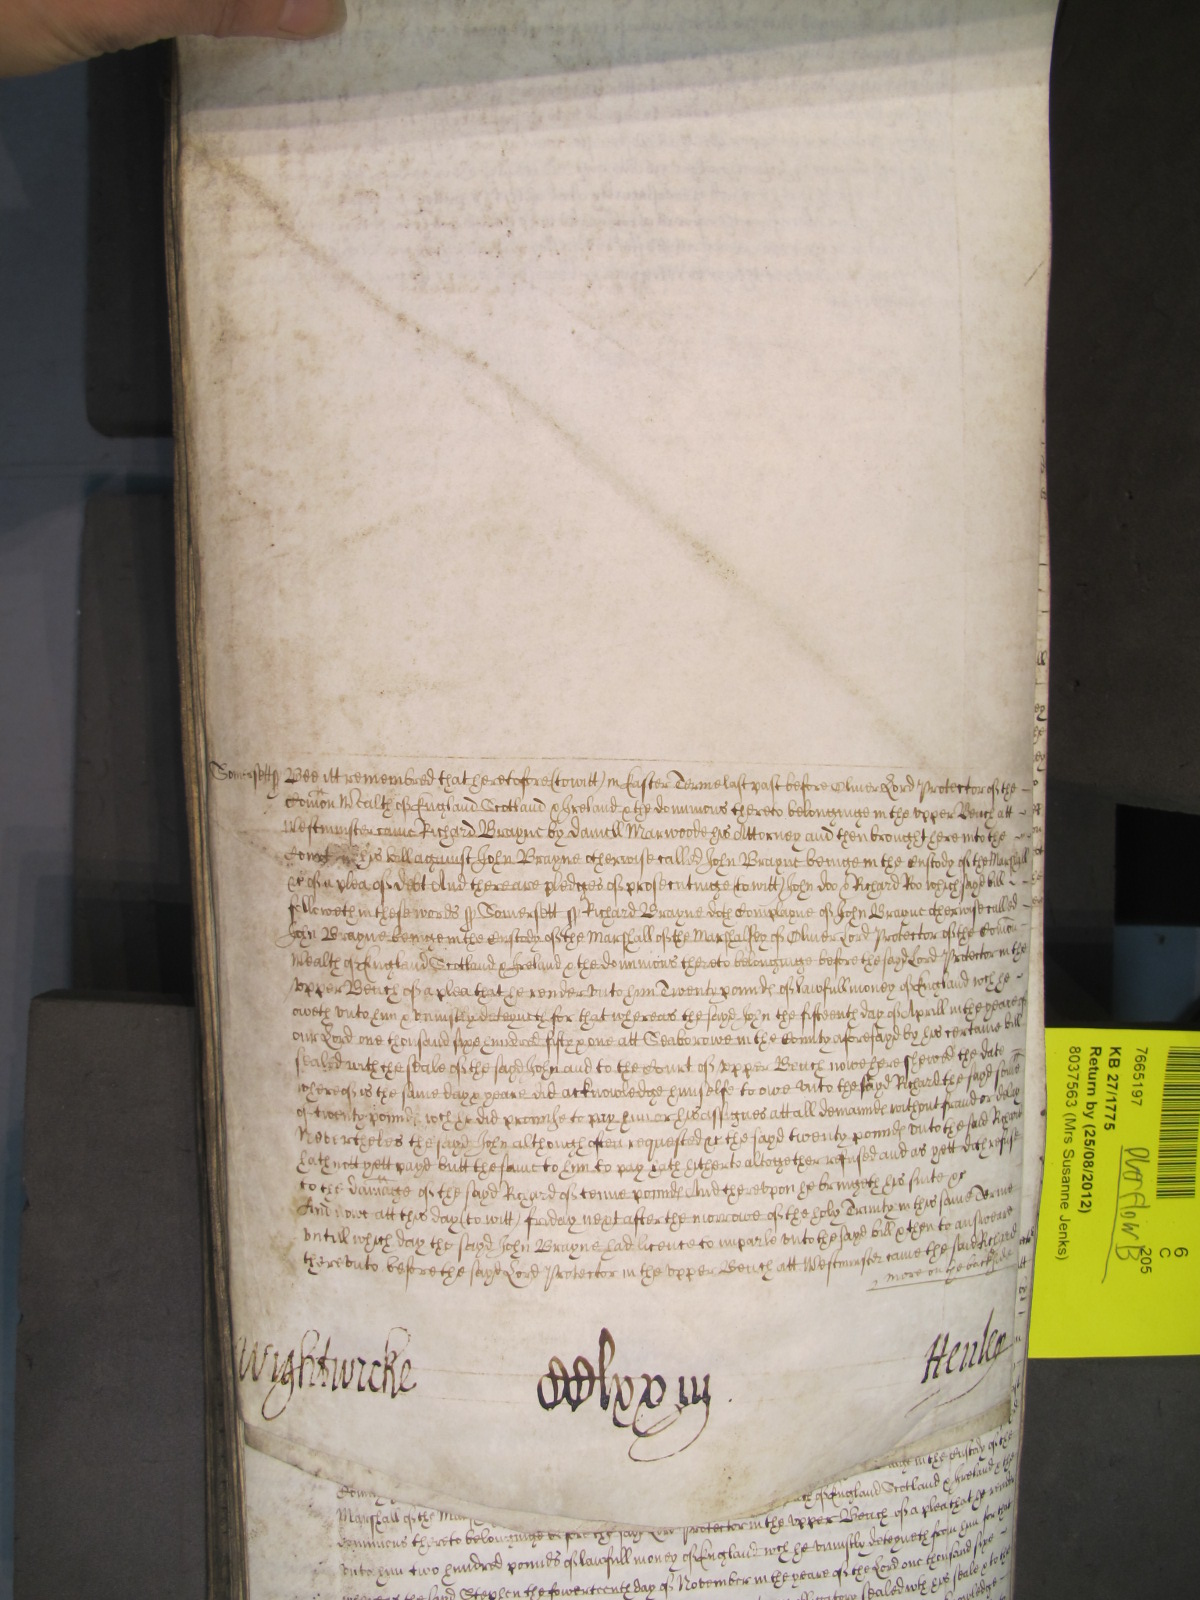 Somersett ss Bee itt remembred that heretofore (to witt) in Easter Terme last past before Oliver Lord Protector of the
Comon Wealth of England Scotland & Ireland & the dominions thereto belonginge in the upper Bench att
Westminster came Richard Brayne by Daniell Marwoode his Attorney and then brought here into the
Court his bill against John Brayne otherwise called John Brayne beinge in the Custody of the Marshall
&c of a plea of debt And there are pledges of prosecutinge (to witt) John doo & Richard Roo which sayd bill
followeth in these words ss Somersett ss Richard Brayne doth Complayne of John Brayne otherwise called
John Brayne beinge in the Custody of the Marshall of the Marshalsey of Oliver Lord Protector of the Comon
Wealth of England Scotland & Ireland & the dominions thereto belonginge before the sayd Lord Protector in the
upper Bench of a plea that he render unto him Twenty pounds of lawfull money of England wch he
oweth unto him & uniustly deteyneth for that whereas the sayd John the fifteenth day of Aprill in the yeare of
our Lord one thousand sixe hundred fifty & one att Seaborowe in the County aforesayd by his certaine bill
sealed with the seale of the sayd John and to the Court of upper Bench nowe here shewed the date
whereof is the same day & yeare did acknowledge himselfe to owe unto the sayd Richard the sayd some
of twenty pounds wch he did promise to pay him or his assignes att all demaunds without fraud or delay
Neverthelesse the sayd John although often requested &c the sayd twenty pounds unto the said Richard
hath nott yett payd butt the same to him to pay hath hitherto altogether refused and as yett doth refuse
to the damage of the sayd Richard of tenne pounds And thereupon he bringeth his suite &c
And nowe att this day (to witt) friday next after the morrowe of the holy Trinity in this same Terme
untill which day the sayd John Brayne had licence to imparle unto the sayd bill & then to answeare
thereunto before the sayd Lord Protector in the upper Bench att Westminster came the said Richard
more on the backside
Wightwicke
CClxxiii
Henley
in the Custody of the
of England Scotland & Ireland & the
Marshall of the
dominions thereto belonginge before the sayd Lord Protector in the upper Bench of a plea that he render
unto him two hundred pounds of lawfull money of England wch he uniustly deteyneth from him for that
Stephen the fowerteenth day of November in the yeare of the Lord one thousand sixe
sealed wth his seale & to the
7665197
KB 27/1775
Return by (25/08/2012)
8037563 (Mrs Susanne Jenks)
6
C
205